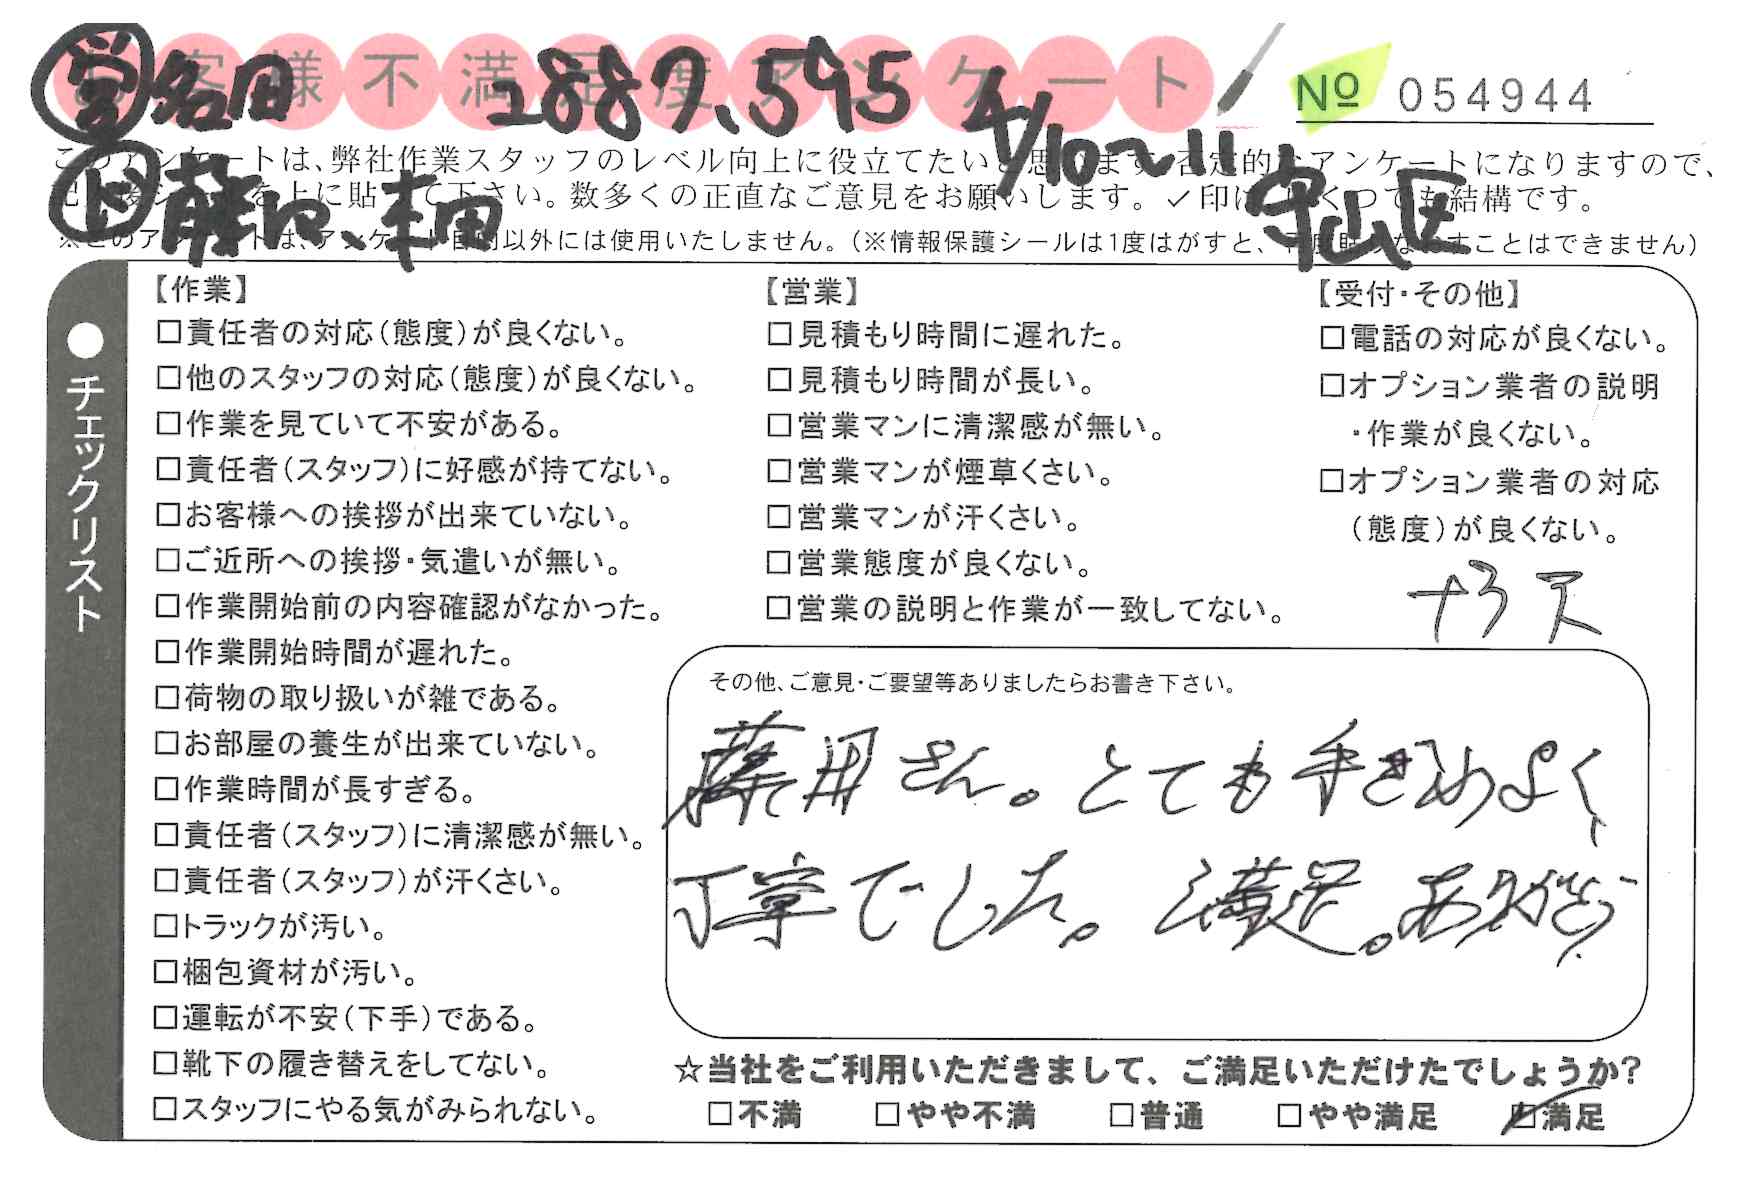 お客様不満足度アンケート
営 名田 2887,595 4/10〜11 守山区
ド 藤田、本田
№ 054944
このアンケートは、弊社作業スタッフのレベル向上に役立てたいと思います。否定的なアンケートになりますので、
を上に貼って下さい。数多くの正直なご意見をお願いします。✓印はいくつでも結構です。
※このアンケートは、アンケート目的以外には使用いたしません。（※情報保護シールは1度はがすと、再度貼りなおすことはできません）
●チェックリスト
【作業】
□責任者の対応（態度）が良くない。
□他のスタッフの対応（態度）が良くない。
□作業を見ていて不安がある。
□責任者（スタッフ）に好感が持てない。
□お客様への挨拶が出来ていない。
□ご近所への挨拶・気遣いが無い。
□作業開始前の内容確認がなかった。
□作業開始時間が遅れた。
□荷物の取り扱いが雑である。
□お部屋の養生が出来ていない。
□作業時間が長すぎる。
□責任者（スタッフ）に清潔感が無い。
□責任者（スタッフ）が汗くさい。
□トラックが汚い。
□梱包資材が汚い。
□運転が不安（下手）である。
□靴下の履き替えをしてない。
□スタッフにやる気がみられない。
【営業】
□見積もり時間に遅れた。
□見積もり時間が長い。
□営業マンに清潔感が無い。
□営業マンが煙草くさい。
□営業マンが汗くさい。
□営業態度が良くない。
□営業の説明と作業が一致してない。
【受付・その他】
□電話の対応が良くない。
□オプション業者の説明
・作業が良くない。
□オプション業者の対応
（態度）が良くない。
その他、ご意見・ご要望等ありましたらお書き下さい。
藤田さん。とても手ぎわよく、
丁寧でした。満足。ありがとう
☆当社をご利用いただきまして、ご満足いただけたでしょうか？
□不満 □やや不満 □普通 □やや満足 ☑満足